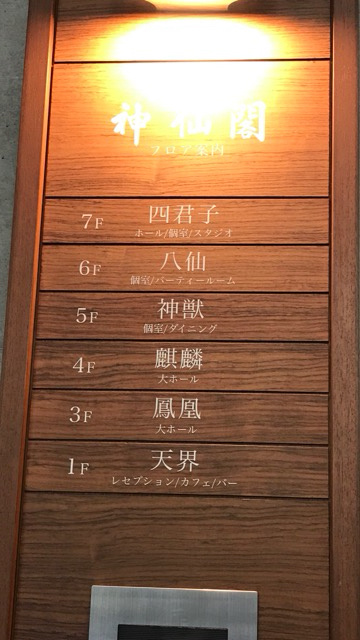 神仙閣
フロア案内
7F 四君子
ホール/個室/スタジオ
6F 八仙
個室/パーティールーム
5F 神獣
個室/ダイニング
4F 麒麟
大ホール
3F 鳳凰
大ホール
1F 天界
レセプション/カフェ/バー